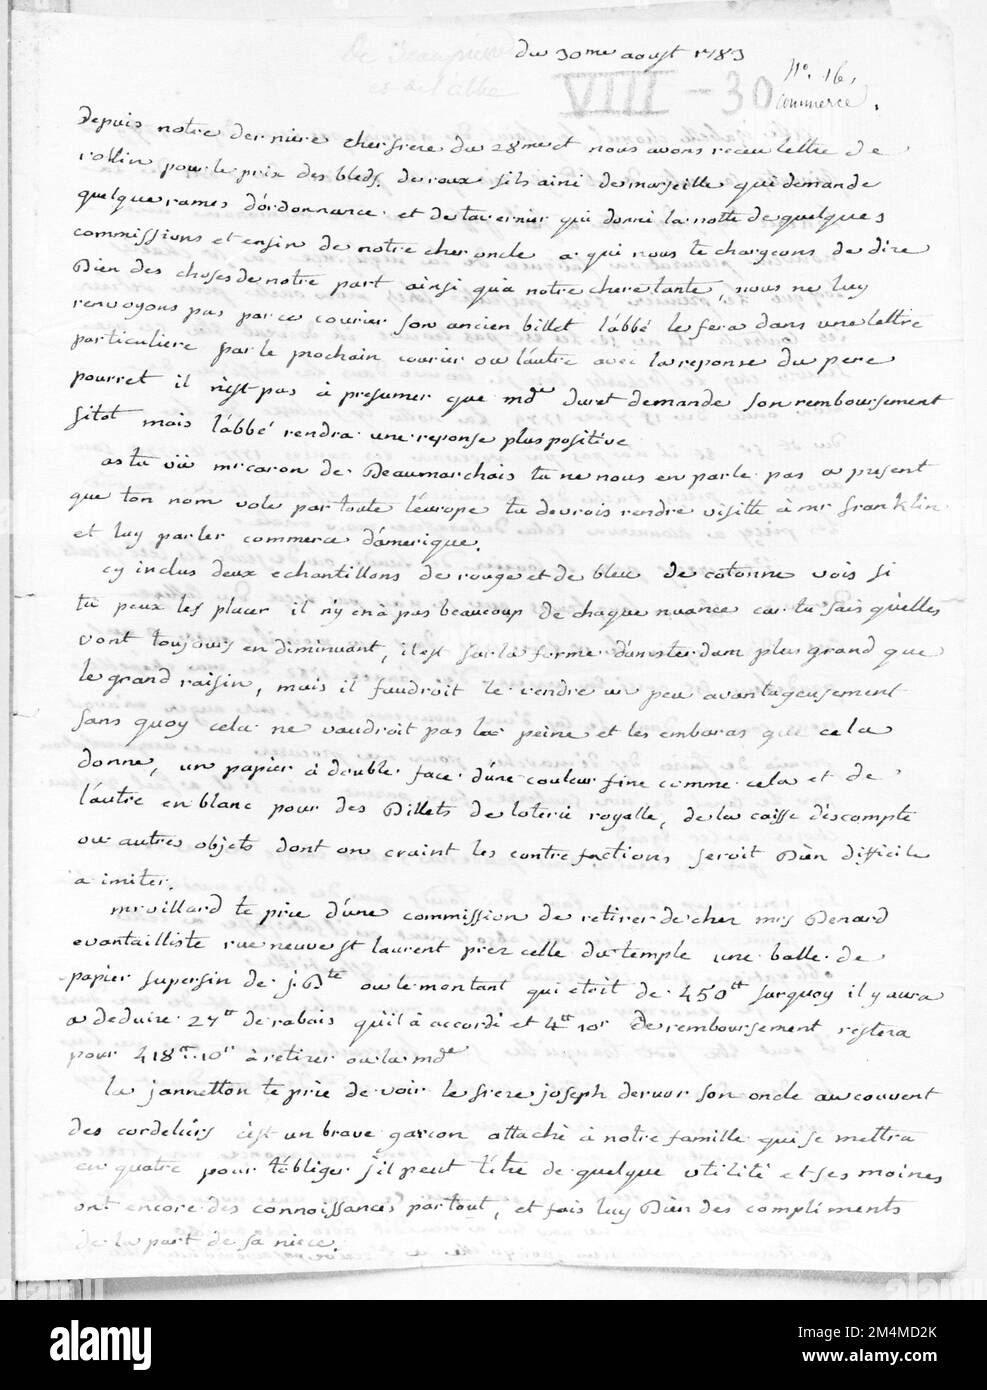 du 30me aoust 1783
No. 16.
VIII - 30
commerce.
depuis notre derniere cher frere du 28me ct nous avons receu lettre de
rollin pour le prix des bleds, de roux fils ainé de marseille qui demande
quelque rames d'ordonnance et de tavernier qui donne la notte de quelques
commissions et enfin de notre cher oncle a qui nous te chargeons de dire
Bien des choses de notre part ainsi qu'a notre chere tante, nous ne luy
renvoyons pas par ce courier son ancien billet l'abbé le fera dans une lettre
particuliere par le prochain courier ou l'autre avec la reponse du pere
pourret il n'est pas à presumer que mde duret demande son remboursement
sitot mais l'abbé rendra une reponse plus positive
as tu vü mr caron de Beaumarchais tu ne nous en parle pas a present
que ton nom vole par toute l'europe tu devrois rendre visitte à mr franklin
et luy parler commerce d'amerique.
cy inclus deux echantillons de rouge et de bleu de cotonne vois si
tu peux les placer il n'y en a pas beaucoup de chaque nuance car tu sais qu'elles
vont toujours en diminuant, il est sur la forme d'amsterdam plus grand que
le grand raisin, mais il faudroit le vendre un peu avantageusement
sans quoy cela ne vaudroit pas la peine et les embaras que cela
donne, un papier à double face d'une couleur fine comme cela et de
l'autre en blanc pour des Billets de loterie royalle, de la caisse d'escompte
ou autres objets dont on craint les contrefactions seroit Bien difficile
a imiter.
mr villard te prie d'une commission de retirer de cher mrs Benard
evantailliste rue neuve st laurent prez celle du temple une balle de
papier superfin de j. Bte ou le montant qui etoit de 450tt surquoy il y aura
a deduire 27tt de rabais qu'il à accordé et 4tt 10s de remboursement restera
pour 418tt.10s à retirer ou la mde
la jannetton te prie de voir le frere joseph dervor son oncle au couvent
des cordeliers c'est un brave garcon attaché à notre famille qui se mettra
en quatre pour t'obliger s'il peut t'être de quelque utilité et ses moines
ont encore des connoissances partout, et fais luy Bien des compliments
de la part de sa niece.
alamy
Image ID: 2M4MD2K
www.alamy.com